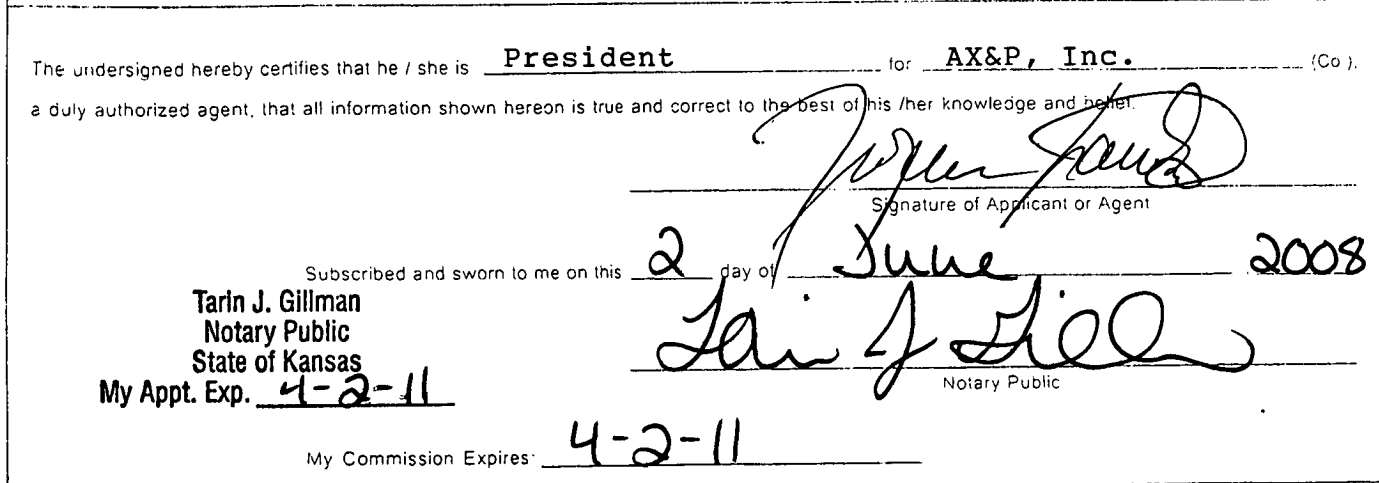 The undersigned hereby certifies that he / she is President for AX&P, Inc. (Co ),
a duly authorized agent, that all information shown hereon is true and correct to the best of his /her knowledge and belief.
Signature of Applicant or Agent
Subscribed and sworn to me on this 2 day of June 2008
Tarin J. Gillman
Notary Public
State of Kansas
My Appt. Exp. 4-2-11
Tarin J Gillman
Notary Public
My Commission Expires: 4-2-11